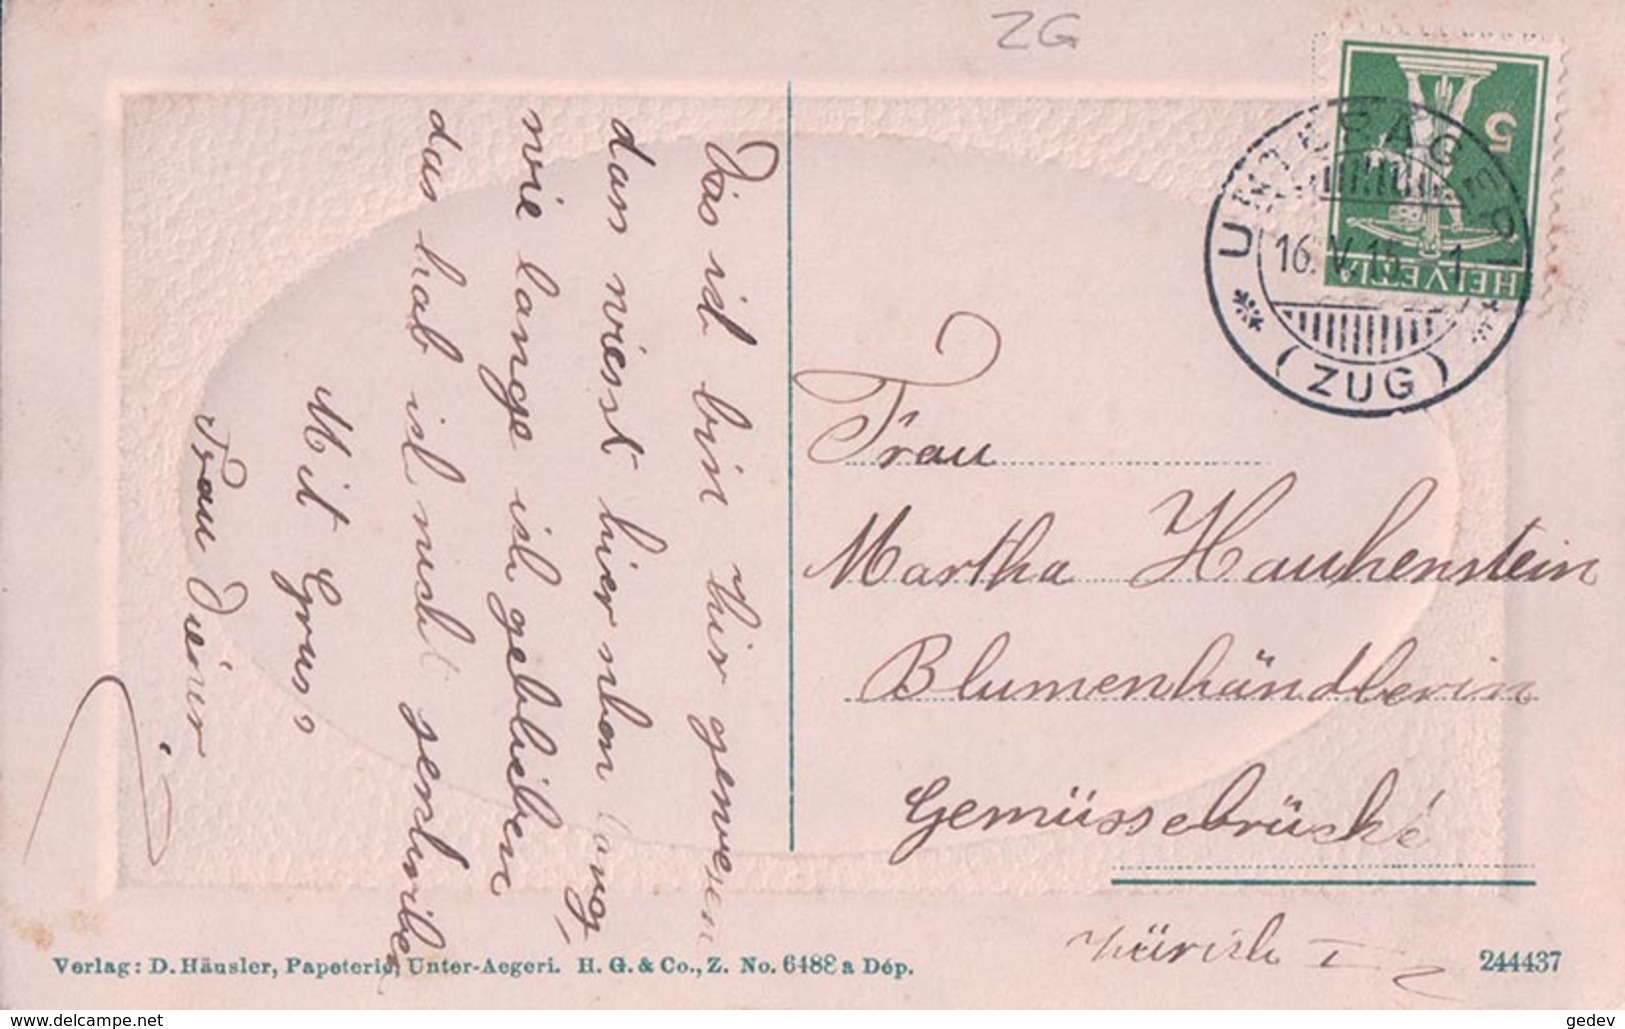 ZG
5
HELVETIA
UNTERÄGERI
16. V. 15. 1
(ZUG)
Das ich bin hir gewesen
dass wiest hier neben
wie lange ich geblieben
das hab ich nicht
Mit Gruss
Frau
Frau
Martha Hauhenstein
Blumenhändlerin
Gemüssebrücke
Zürich I
Verlag: D. Häusler, Papeterie, Unter-Aegeri. H. G. & Co., Z. No. 6488 a Dép.
244437
https://www.delcampe.net
gedev